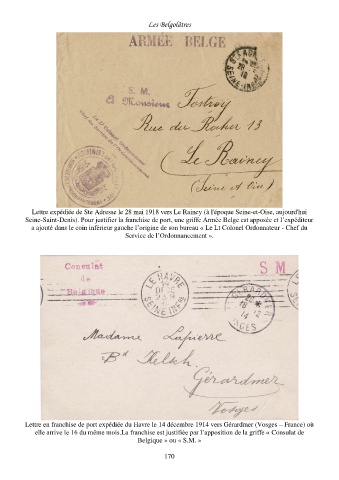 Les Belgolâtres
ARMÉE BELGE
S. M.
El Monsieur
Rue du Rocher 13
Le Raincy
(Seine et Oise)
Lettre expédiée de Ste Adresse le 28 mai 1918 vers Le Rainey (à l'époque Seine-et-Oise, aujourd'hui
Seine-Saint-Denis). Pour justifier la franchise de port, une griffe Armée Belge est apposée et l'expéditeur
a ajouté dans le coin inférieur gauche l'origine de son bureau « Le Lt Colonel Ordonnateur - Chef du
Service de l'Ordonnancement ».
Consulat
de
Belgique
S M
LE HAVRE
SEINE INFRE
GERARDMER
VOSGES
Madame Lapierre
Bd Kelsch
Gérardmer
Vosges
Lettre en franchise de port expédiée du Havre le 14 décembre 1914 vers Gérardmer (Vosges – France) où
elle arrive le 16 du même mois.La franchise est justifiée par l'apposition de la griffe « Consulat de
Belgique » ou « S.M. »
170